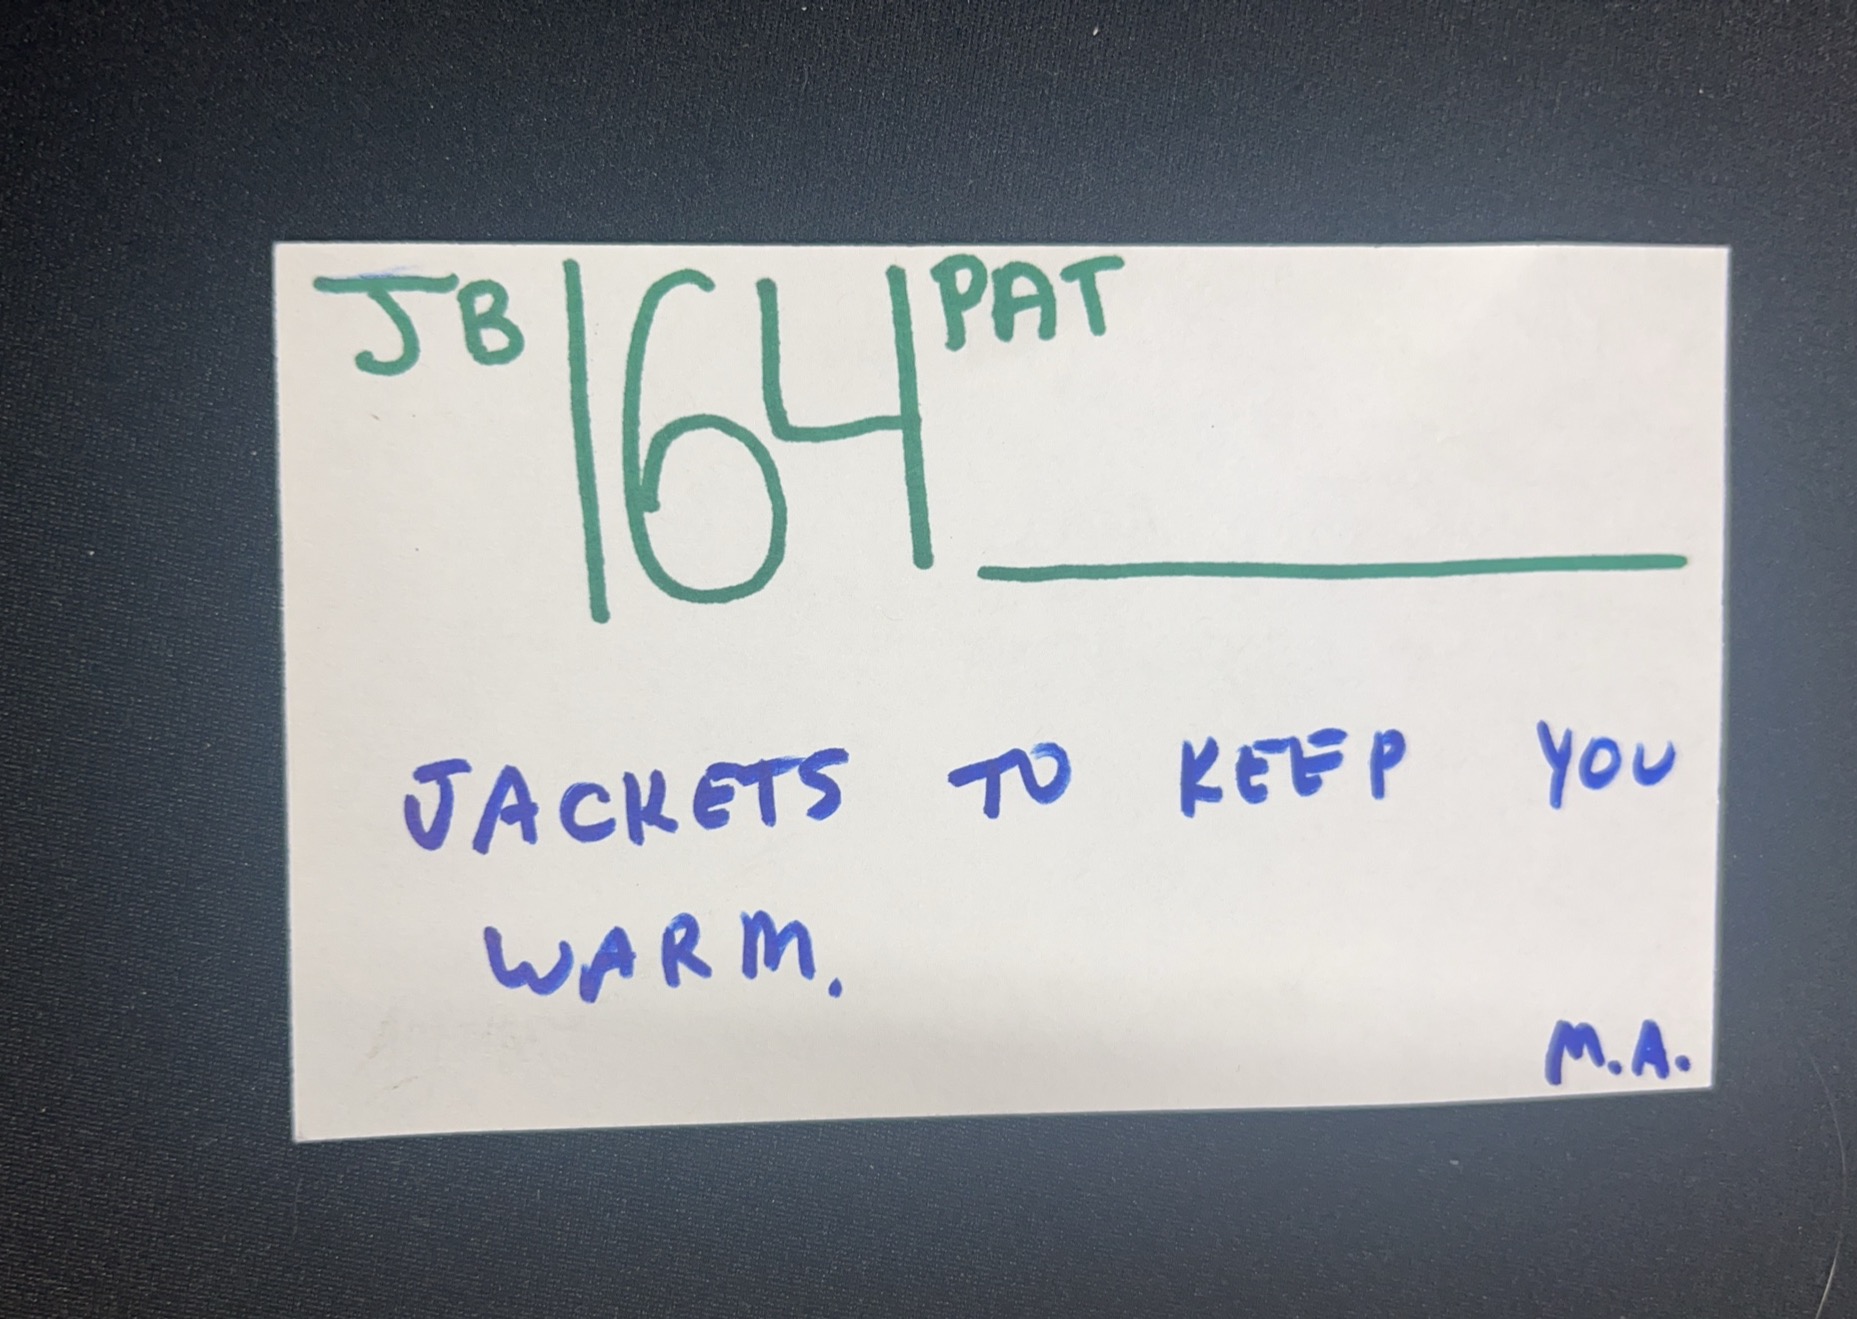 JB 164 PAT
JACKETS TO KEEP YOU
WARM.
M.A.